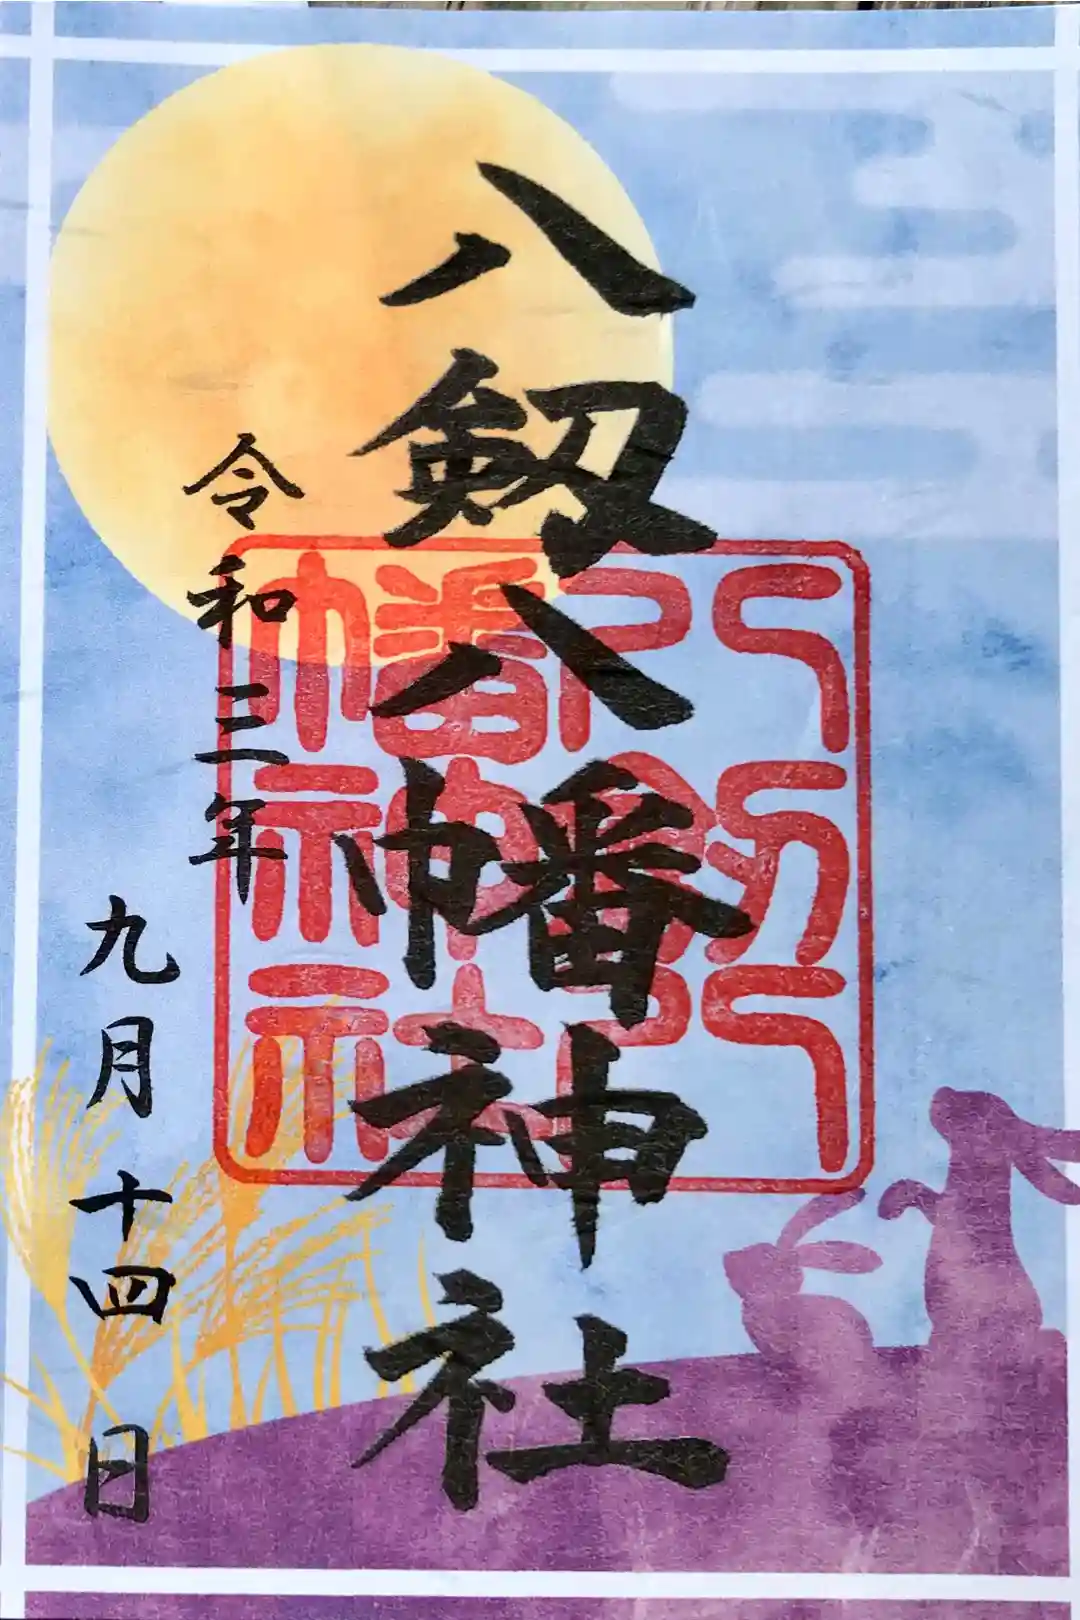 八剱八幡神社
令和三年
九月十四日
八剱八
幡神社